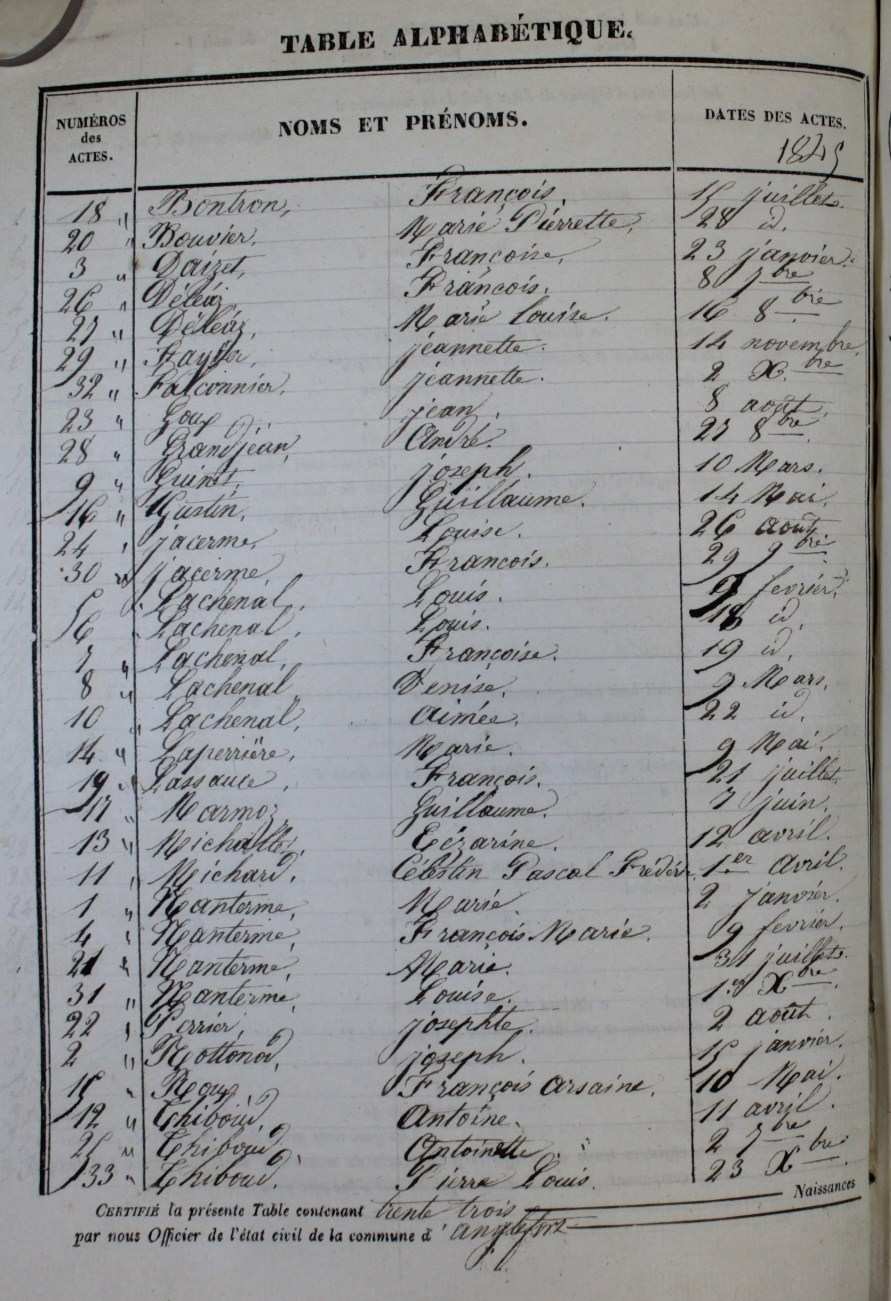 TABLE ALPHABÉTIQUE.
NUMÉROS des ACTES. NOMS ET PRÉNOMS. DATES DES ACTES.
1845
18 " Bontron, François. 15 juillet.
20 " Bouvier, Marie Pierrette, 28 id.
3 " Daizet, Françoise, 23 janvier.
26 " Déléaz, François. 8 7bre
27 " Déléaz, Marie Louise. 16 8bre
29 " jeannette. 14 novembre.
32 " Falconnier, jeannette. 2 Xbre
23 " Goux jean. 8 août,
28 " Grandjean, André. 27 8bre
9 " Guinet, joseph. 10 Mars.
16 " Gustin, Guillaume. 14 Mai.
24 " jacerme, Louise. 26 août,
30 " jacerme François. 29 9bre
5 " Lachenal, Louis. 9 fevrier.
6 " Lachenal, Louis. 18 id.
7 " Lachenal, Françoise. 19 id.
8 " Lachenal Denise, 9 Mars,
10 " Lachenal, aimée. 22 id.
14 " Laperrière, Marie. 9 Mai.
19 " Lassauce, François. 21 juillet.
17 " Marmoz, Guillaume. 7 juin.
13 " Michallet, Cézarine. 12 avril.
11 " Michard, Célestin Pascal Frédéric, 1er avril.
1 " Nanterme, Marie. 2 janvier.
4 " Nanterme, François Marie. 9 fevrier.
21 " Nanterme, Marie. 31 juillet.
31 " Nanterme, Louise. 1er Xbre
22 " Perrier, josephte. 2 août.
2 " Rottond, joseph. 15 janvier.
15 " Roux François arsaine, 10 Mai.
12 " Thiboud, Antoine. 11 avril.
25 " Thiboud, Antoinette. 2 7bre
33 " Thiboud, Pierre Louis. 23 Xbre
CERTIFIÉ la présente Table contenant trente trois Naissances
par nous Officier de l'état civil de la commune d'anglefort